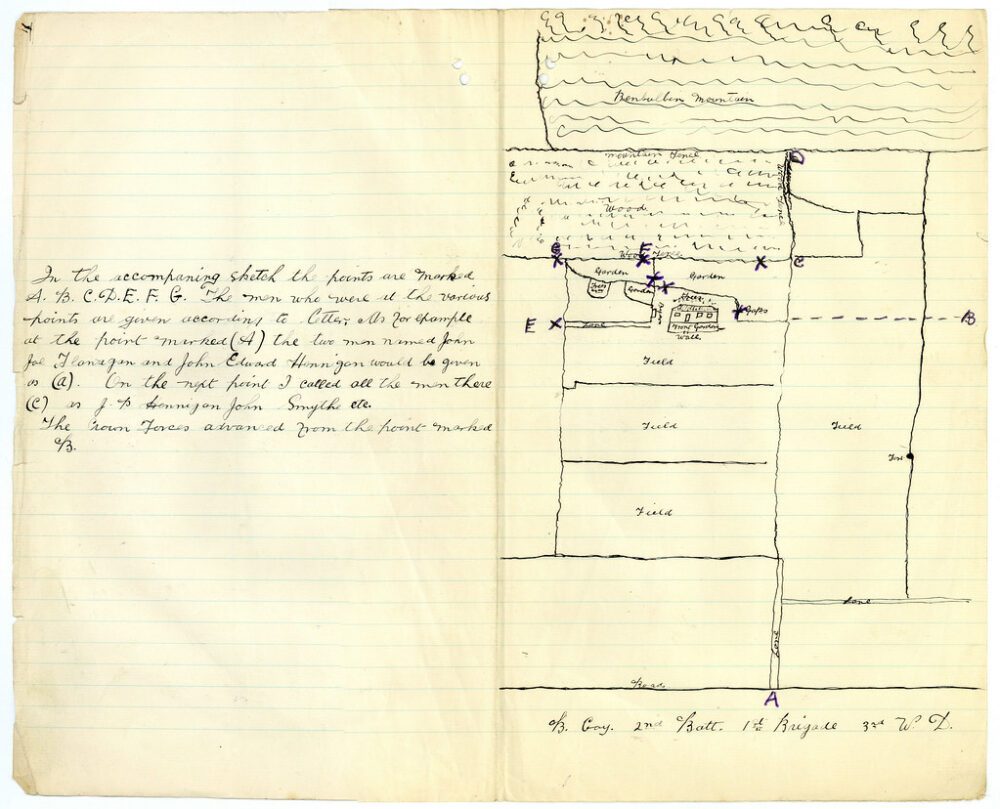 In the accompaning sketch the points are marked
A. B. C. D. E. F. G. The men who were at the various
points are given according to letter; As for example
at the point marked (A) the two men named John
Joe Flanagan and John Edward Hennigan would be given
as (a). On the next point I called all the men there
(C) as J. P Hennigan John Smythe etc.
The Crown Forces advanced from the point marked
B.
Benbulbin Mountain
D
Mountain Fence
Wood
G
F
Wood Fence
C
Garden
Garden
Garden
Trees
Gaps
B
E
Lane
Front Garden
Wall
Field
Field
Field
Field
Lane
Lane
Road
A
B. Coy. 2nd Batt. 1st Brigade 3rd W. D.